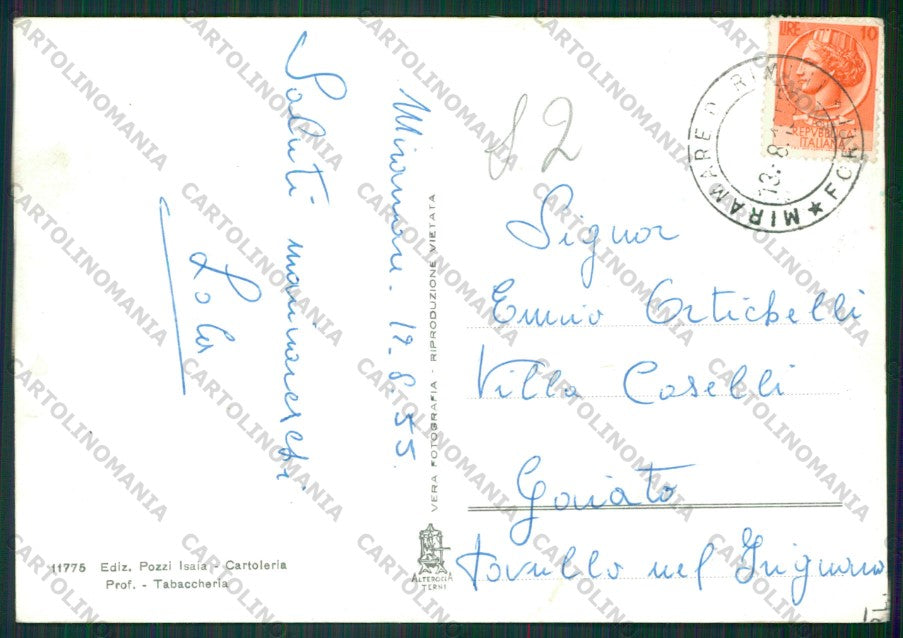 Miramare. 12.8.55
Saluti marinareschi
Lola
82
LIRE 10
REPVBBLICA
ITALIANA
MIRAMARE D RIMINI
FORLI
13.8
Signor
Ennio Ortichelli
Villa Caselli
Gaiato
Pavullo nel Frignano
VERA FOTOGRAFIA - RIPRODUZIONE VIETATA
11775 Ediz. Pozzi Isaia - Cartoleria
Prof. - Tabaccheria
ALTEROCCA
TERNI
CARTOLINOMANIA